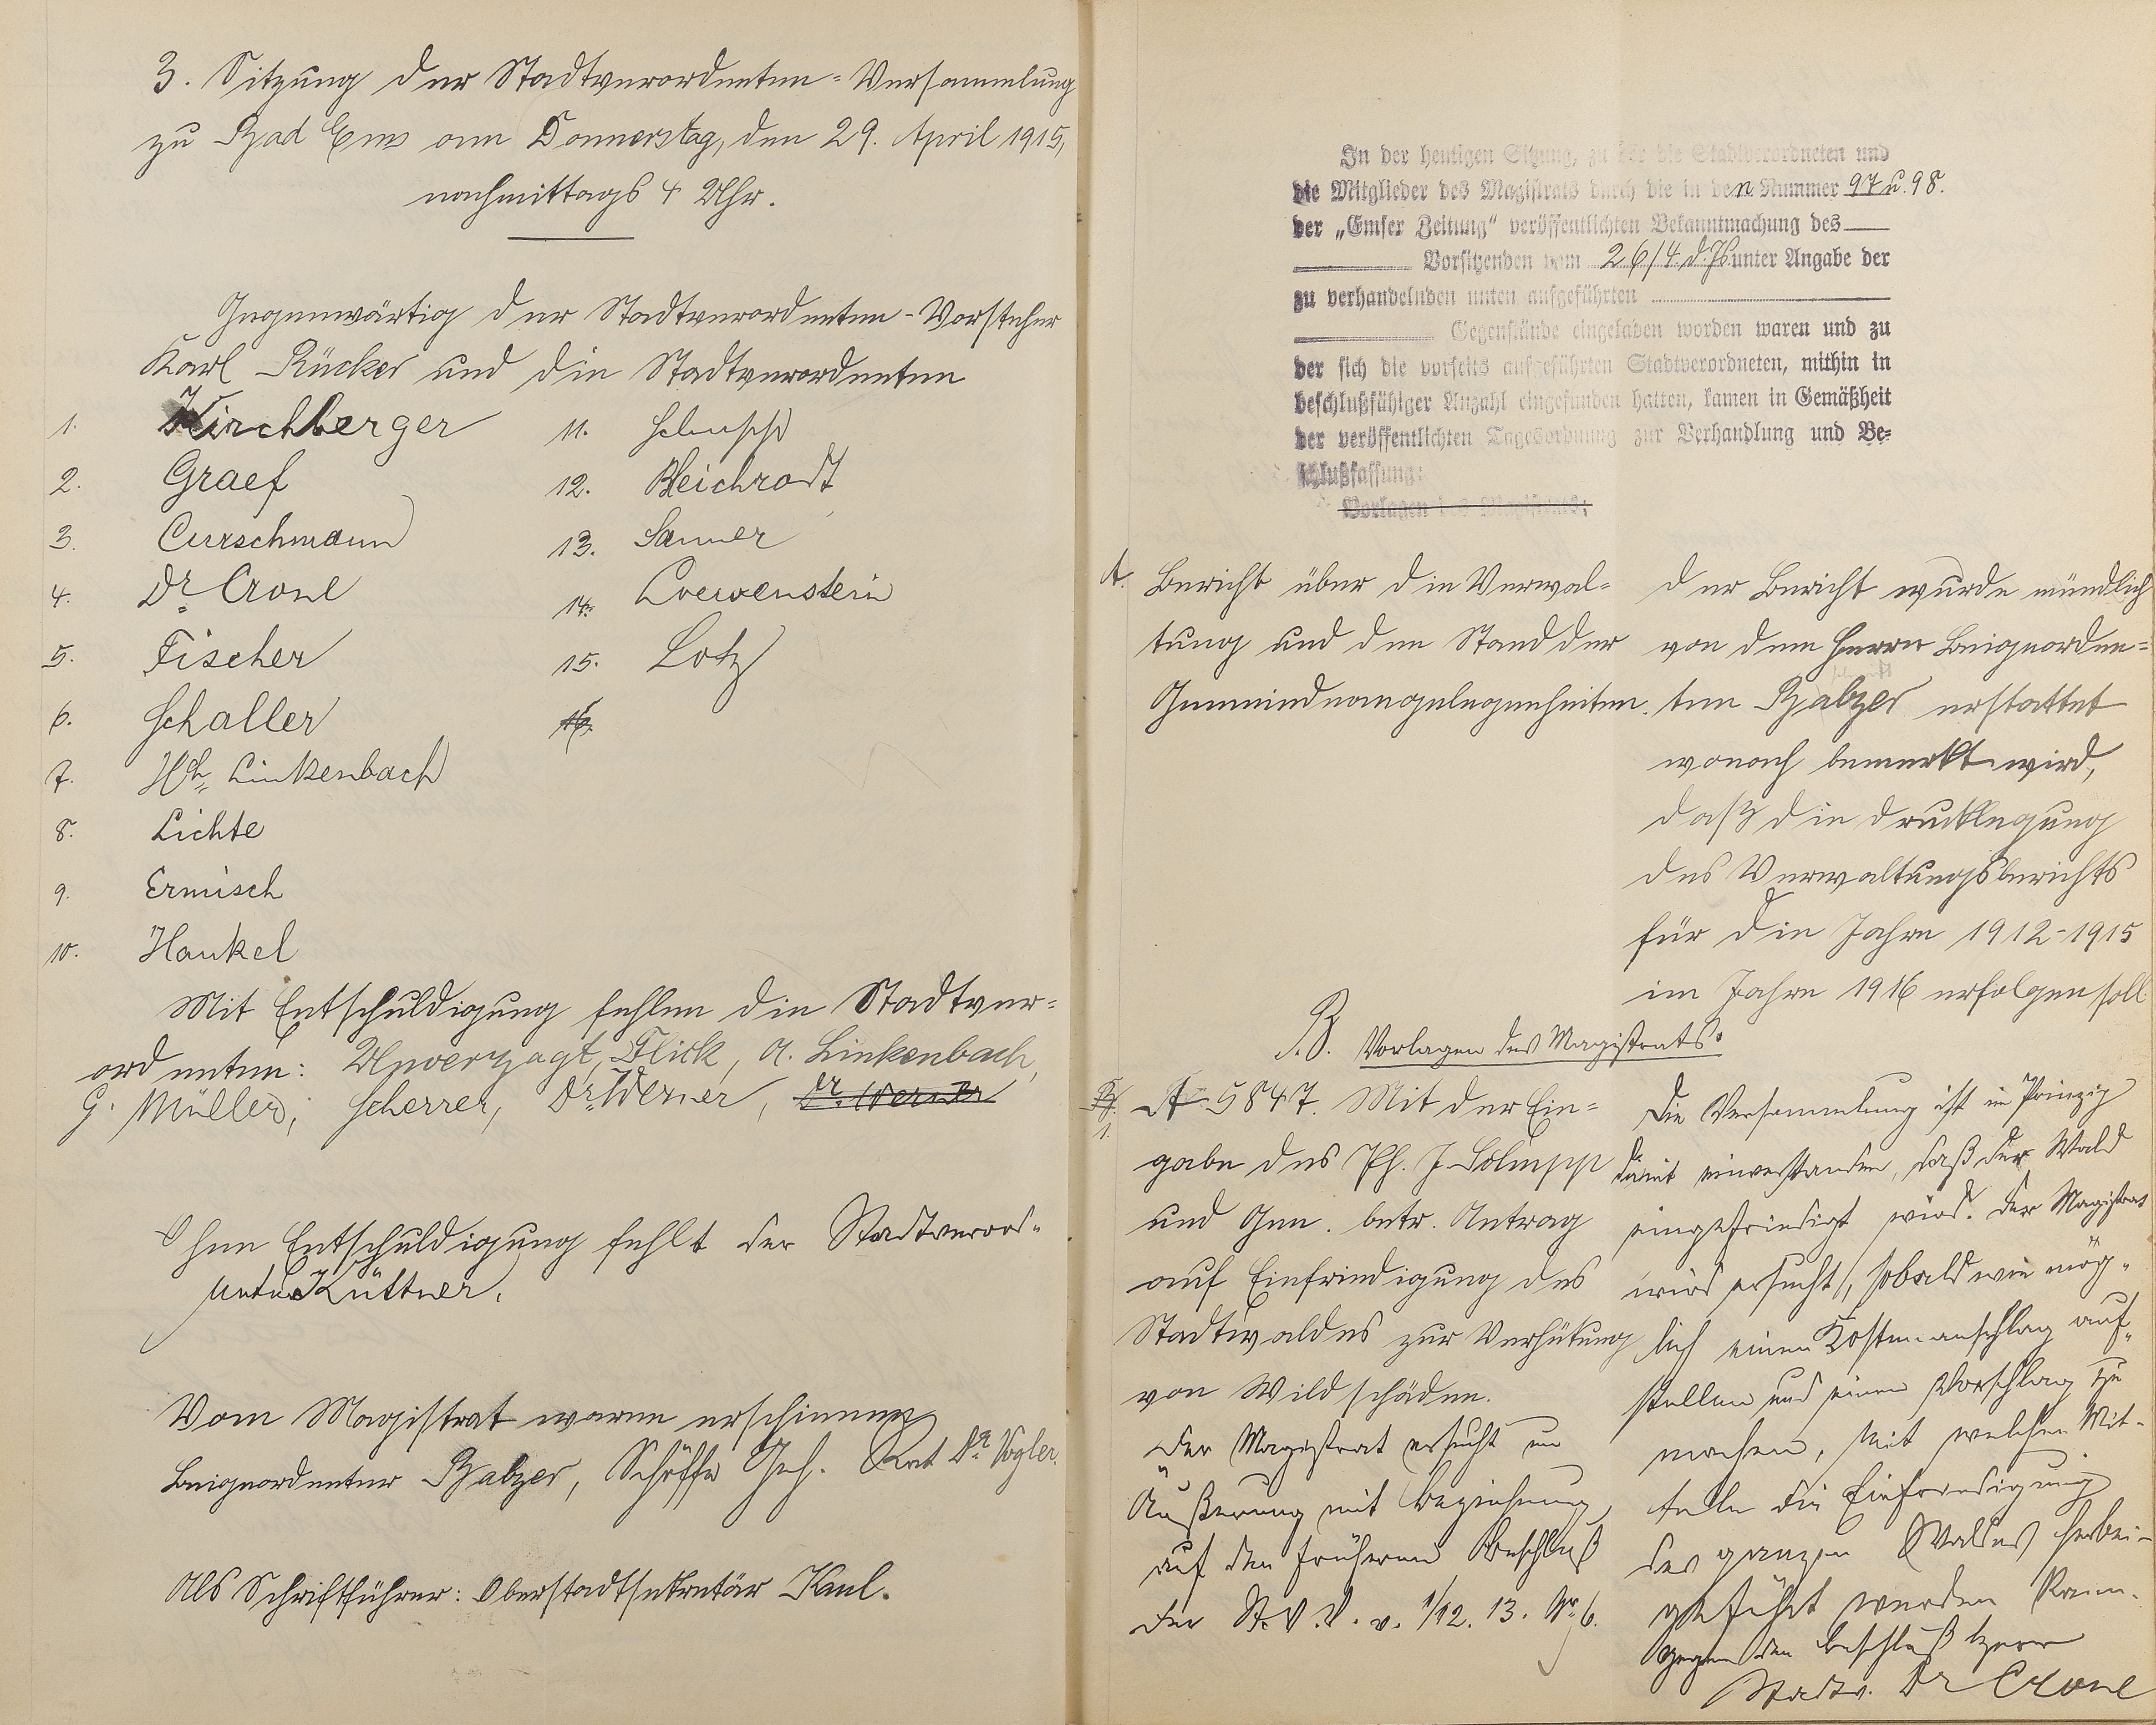 3. Sitzung der Stadtverordneten-Versammlung
zu Bad Ems am Donnerstag, den 29. April 1915,
nachmittags 4 Uhr.
Gegenwärtig der Stadtverordneten-Vorsteher
Karl Rücker und die Stadtverordneten
1. Kirchberger
2. Graef
3. Curschmann
4. Dr. Crone
5. Fischer
6. Schaller
7. Hch. Linkenbach
8. Lichte
9. Ermisch
10. Hankel
11. Schupp
12. Reichrodt
13. Sauer
14. Loewenstein
15. Lotz
16.
Mit Entschuldigung fehlen die Stadtver-
ordneten: Unverzagt, Flick, A. Linkenbach,
G. Müller, Scherrer, Dr. Werner, Dr. Werner
Ohne Entschuldigung fehlt der Stadtverord-
nete Küttner.
Vom Magistrat waren erschienen
Beigeordneter Balzer, Schöffe Geh. Rat Dr. Vogler.
Als Schriftführer: Oberstadtsekretär Kaul.
In der heutigen Sitzung, zu der die Stadtverordneten und
die Mitglieder des Magistrats durch die in den Nummer 97 u. 98.
der „Emser Zeitung“ veröffentlichten Bekanntmachung des
Vorsitzenden vom 26/4 d. Js unter Angabe der
zu verhandelnden unten aufgeführten
Gegenstände eingeladen worden waren und zu
der sich die vorseits aufgeführten Stadtverordneten, mithin in
beschlußfähiger Anzahl eingefunden hatten, kamen in Gemäßheit
der veröffentlichten Tagesordnung zur Verhandlung und Be-
schlußfassung:
Vorlagen des Magistrats:
A. Bericht über die Verwal-
tung und den Stand der
Gemeindeangelegenheiten.
Der Bericht wurde mündlich
von dem Herrn Beigeordne-
ten Balzer erstattet
wonach bemerkt wird,
daß die Drucklegung
des Verwaltungsberichts
für die Jahre 1912-1915
im Jahre 1916 erfolgen soll.
B. Vorlagen des Magistrats.
1. A 5847. Mit der Ein-
gabe des Ph. J. Schupp
und Gen. betr. Antrag
auf Einfriedigung des
Stadtwaldes zur Verhütung
von Wildschäden.
Der Magistrat ersucht um
Äußerung mit Beziehung
auf den früheren Beschluß
der St. V. V. v. 1/12. 13. Nr. 6.
Die Versammlung ist im Prinzip
damit einverstanden, daß der Wald
eingefriedigt wird. Der Magistrat
wird ersucht, sobald wie mög-
lich einen Kostenanschlag auf-
stellen und einen Vorschlag zu
machen, mit welchen Mit-
teln die Einfriedigung
des ganzen Waldes herbei-
geführt werden kann.
Gegen den Beschluß
Stadtv. Dr Crone